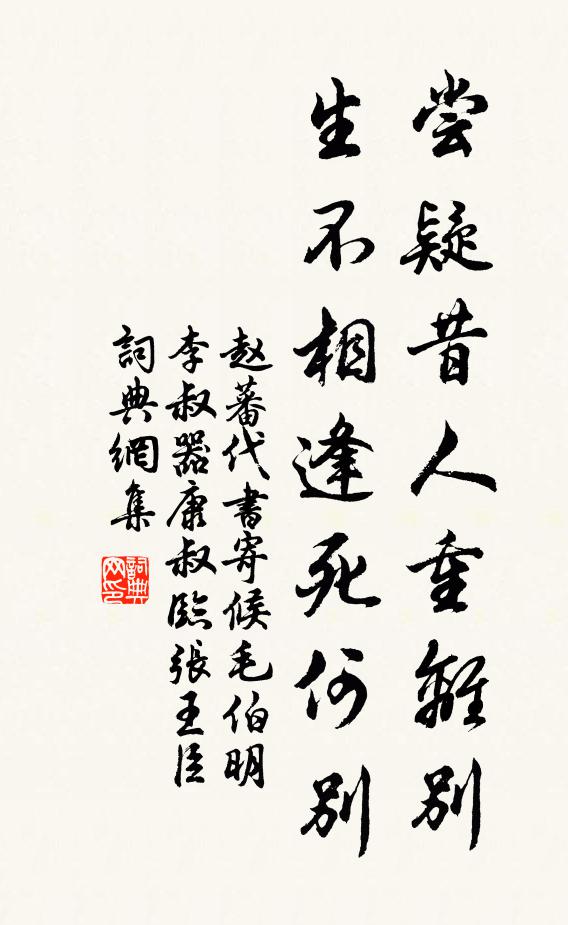 尝疑昔人重離别
生不相逢死何别
赵蕃代書寄候毛伯明
李叔器康叔臨張王臣
詞典網集
詞典
网印